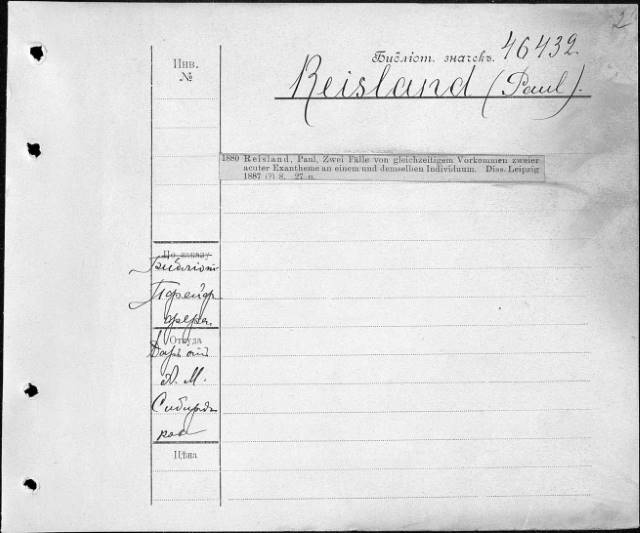 2
Инв.
№
Библіот. значекъ. 46432
Reisland (Paul).
1880 Reisland, Paul, Zwei Fälle von gleichzeitigem Vorkommen zweier
acuter Exantheme an einem und demselben Individuum. Diss. Leipzig
1887 (?) 8. 27 n.
По заказу
Библіот.
Пфейф
фера.
Откуда
Даръ отъ
А. М.
Сибиря
кова
Цѣна